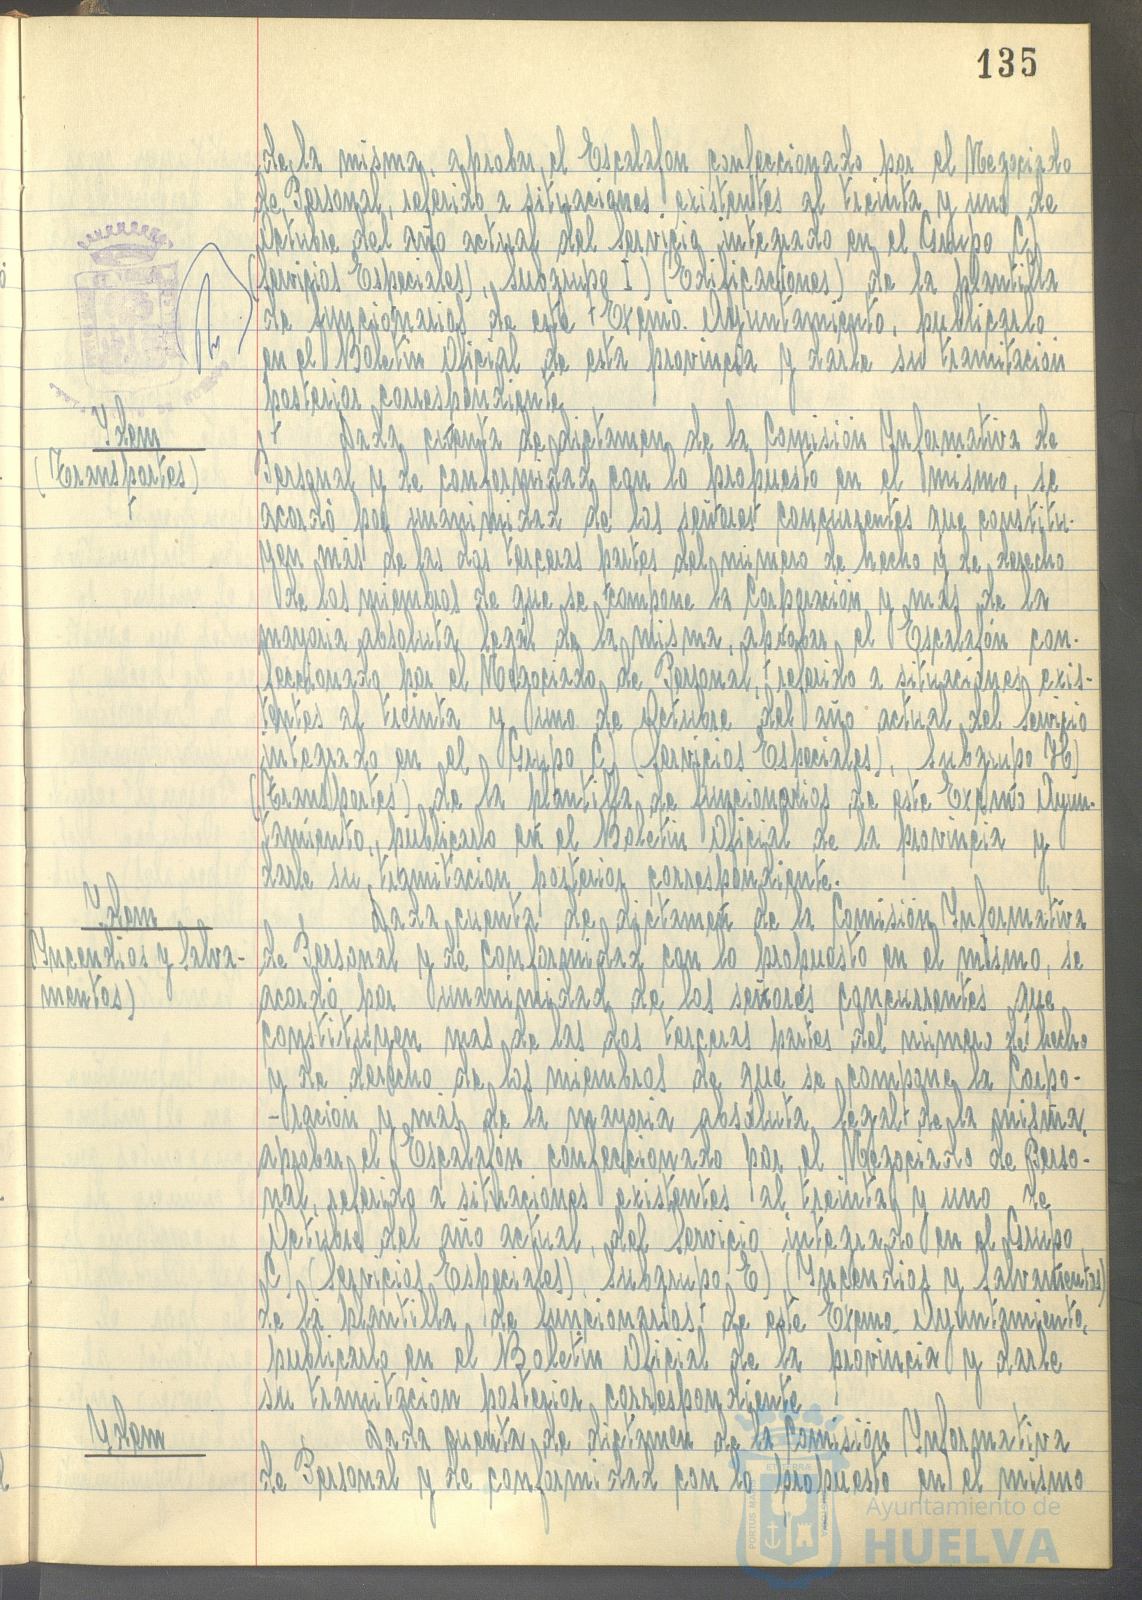 135
de la misma, aprobar el Escalafón confeccionado por el Negociado
de Personal, referido a situaciones existentes al treinta y uno de
Octubre del año actual del Servicio integrado en el Grupo C)
(Servicios Especiales), Subgrupo I) (Edificaciones) de la plantilla
de funcionarios de este Excmo. Ayuntamiento, publicarlo
en el Boletín Oficial de esta provincia y darle su tramitación
posterior correspondiente.
Idem
(Transportes)
Dada cuenta de dictamen de la Comisión Informativa de
Personal y de conformidad con lo propuesto en el mismo, se
acordó por unanimidad de los señores concurrentes que constitu-
yen más de las dos terceras partes del número de hecho y de derecho
de los miembros de que se compone la Corporación y más de la
mayoría absoluta legal de la misma, aprobar el Escalafón con-
feccionado por el Negociado de Personal, referido a situaciones exis-
tentes al treinta y uno de Octubre del año actual del Servicio
integrado en el Grupo C) (Servicios Especiales), Subgrupo H)
(Transportes) de la plantilla de funcionarios de este Excmo Ayun-
tamiento, publicarlo en el Boletín Oficial de la provincia y
darle su tramitación posterior correspondiente.
Idem
Incendios y Salva-
mentos)
Dada cuenta de dictamen de la Comisión Informativa
de Personal y de conformidad con lo propuesto en el mismo, se
acordó por unanimidad de los señores concurrentes que
constituyen mas de las dos terceras partes del número de hecho
y de derecho de los miembros de que se compone la Corpo-
-ración y más de la mayoría absoluta legal de la misma,
aprobar el Escalafón confeccionado por el Negociado de Perso-
nal, referido a situaciones existentes al treinta y uno de
Octubre del año actual, del Servicio integrado en el Grupo
C) (Servicios Especiales), Subgrupo E) (Incendios y Salvamentos)
de la plantilla de funcionarios de este Excmo. Ayuntamiento,
publicarlo en el Boletín Oficial de la provincia y darle
su tramitación posterior correspondiente
Idem
Dada cuenta de dictamen de la Comisión Informativa
de Personal y de conformidad con lo propuesto en el mismo
Ayuntamiento de
HUELVA